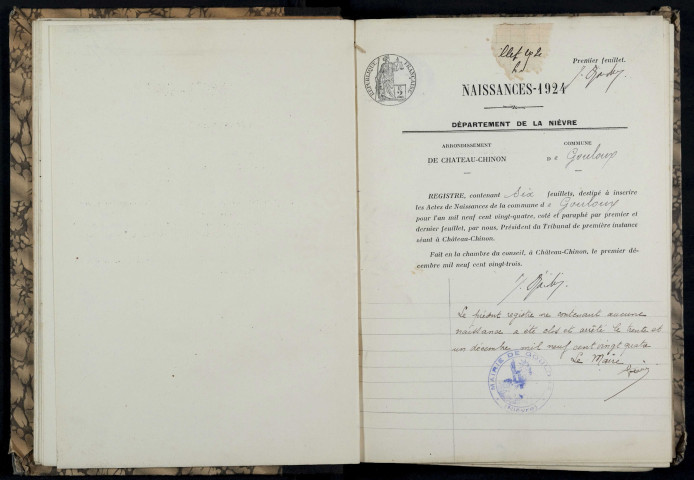 Premier feuillet.
RÉPUBLIQUE FRANÇAISE
NAISSANCES-1924
DÉPARTEMENT DE LA NIÈVRE
ARRONDISSEMENT
DE CHATEAU-CHINON
COMMUNE
D e Gouloux
REGISTRE, contenant Six feuillets, destiné à inscrire
les Actes de Naissances de la commune d e Gouloux
pour l'an mil neuf cent vingt-quatre, coté et paraphé par premier et
dernier feuillet, par nous, Président du Tribunal de première instance
séant à Château-Chinon.
Fait en la chambre du conseil, à Château-Chinon, le premier dé-
cembre mil neuf cent vingt-trois.
Le présent registre ne contenant aucune
naissance a été clos et arrêté le trente et
un décembre mil neuf cent vingt quatre
Le Maire
MAIRIE DE GOULOUX
(NIÈVRE)